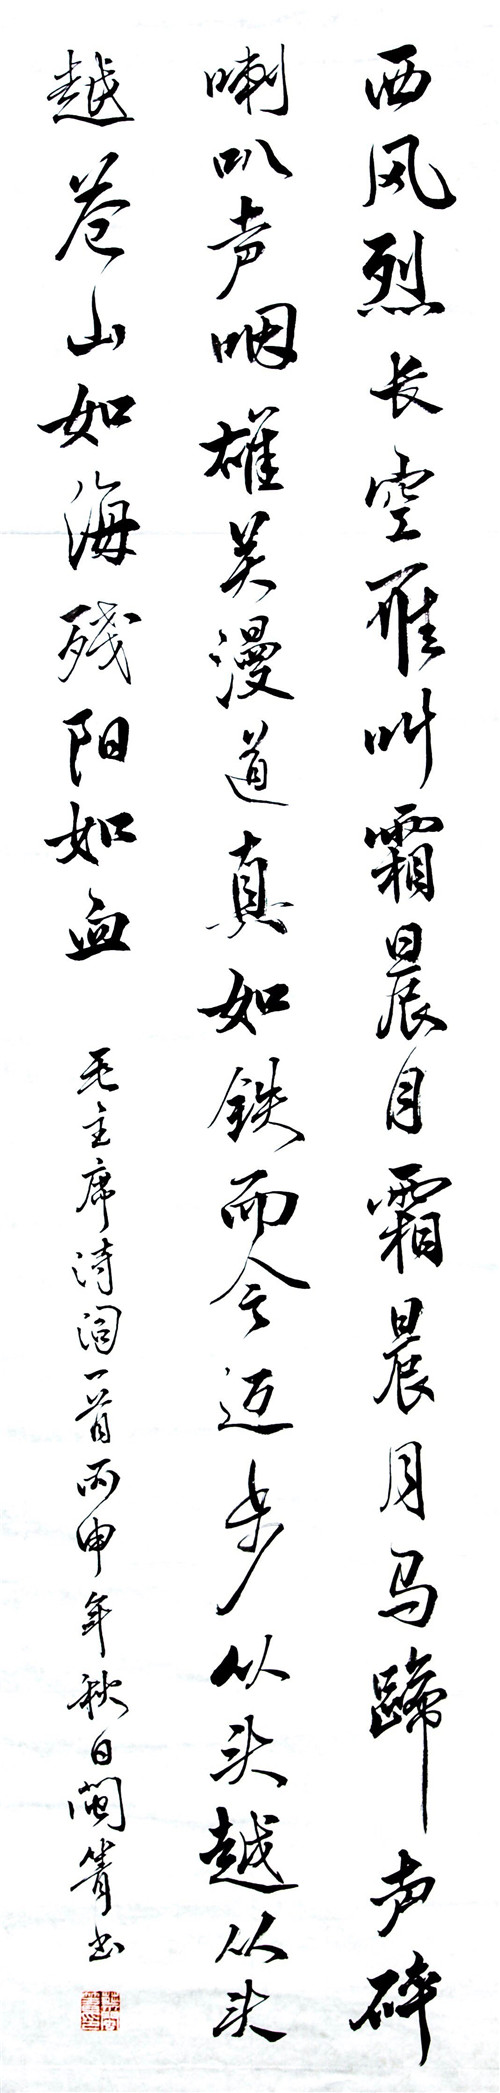 西风烈长空雁叫霜晨月霜晨月马蹄声碎
喇叭声咽雄关漫道真如铁而今迈步从头越从头
越苍山如海残阳如血
毛主席诗词一首丙申年秋日闽箐书